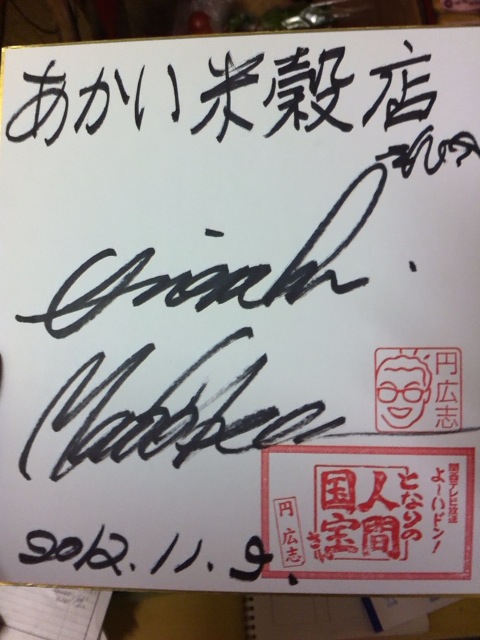 あかい米穀店
さん江
円広志
関西テレビ放送
よ〜いドン!
となりの
人間
国宝
さん
円広志
2012.11.9.